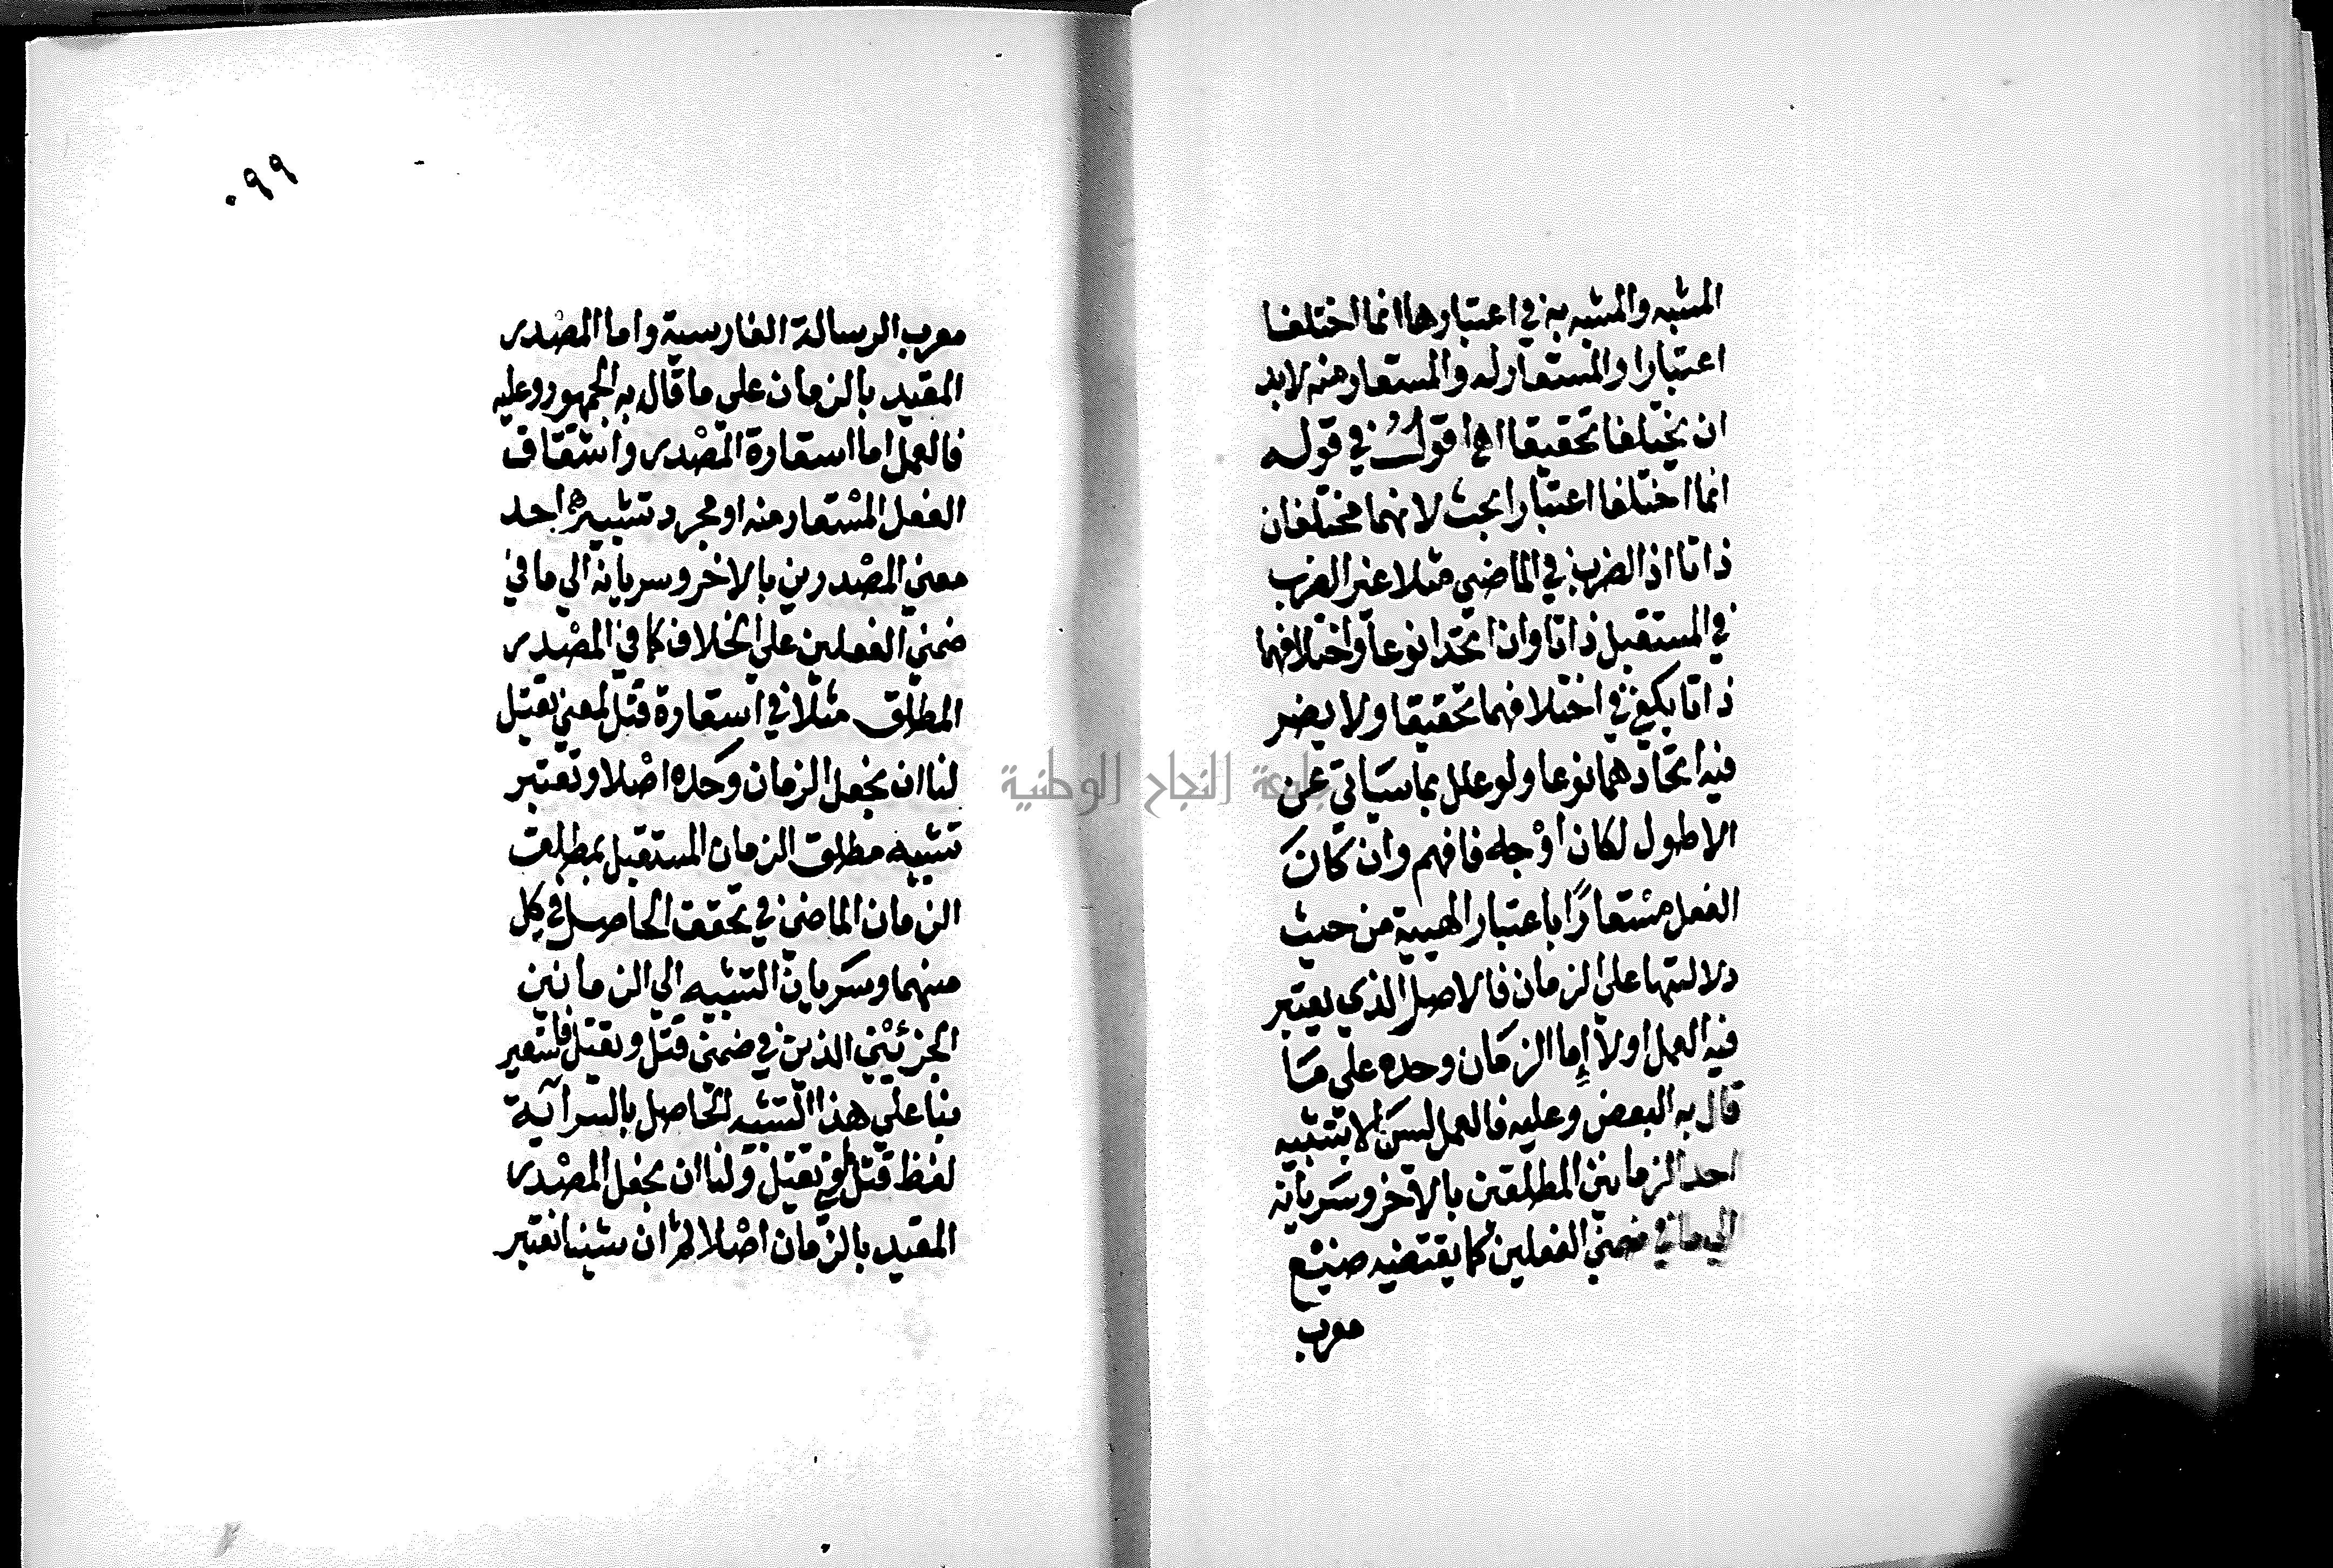 المشبه والمشبه به في اعتبارها انما اختلفا
اعتبارا والمستعار له والمستعار منه لابد
ان يختلفا تحقيقا اهـ اقول في قوله
انما اختلفا اعتبارا بحث لانهما مختلفان
ذاتا اذ الضرب في الماضي مثلا غير الضرب
في المستقبل ذاتا وان اتحدا نوعا واختلافهما
ذاتا يكفي في اختلافهما تحقيقا ولا يضر
فيه اتحادهما نوعا ولو علل بما سيأتي عن
الاطول لكان اوجه فافهم وان كان
الفعل مستعارًا باعتبار الهيية من حيث
دلالتها على الزمان فالاصل الذي يعتبر
فيه العمل اولا إما الزمان وحده على ما
قال به البعض وعليه فالعمل ليس الا بتشبيه
احد الزمانين المطلقين بالآخر وسريانه
الى ما في ضمني الفعلين كما يقتضيه صنيع
معرب
٠٩٩
معرب الرسالة الفارسية واما المصدر
المقيد بالزمان على ما قال به الجمهور وعليه
فالعمل اما استعارة المصدر واشتقاق
الفعل المستعار منه او مجرد تشبيه احد
معنى المصدرين بالاخر وسريانه الى ما في
ضمني الفعلين على الخلاف كما في المصدر
المطلق مثلا في استعارة قتل لمعنى يقتل
لنا ان نجعل الزمان وحده اصلا ونعتبر
تشبيه مطلق الزمان المستقبل بمطلق
الزمان الماضي في تحقق الحاصل في كل
منهما وسريان التشبيه الى الزمانين
الجزئيين الذين في ضمن قتل ويقتل فاستعير
بنا على هذا التشبيه الحاصل بالسراية
لفظ قتل ليقتل ولنا ان نجعل المصدر
المقيد بالزمان اصلا ثم ان شينا نعتبر
جامعة النجاح الوطنية